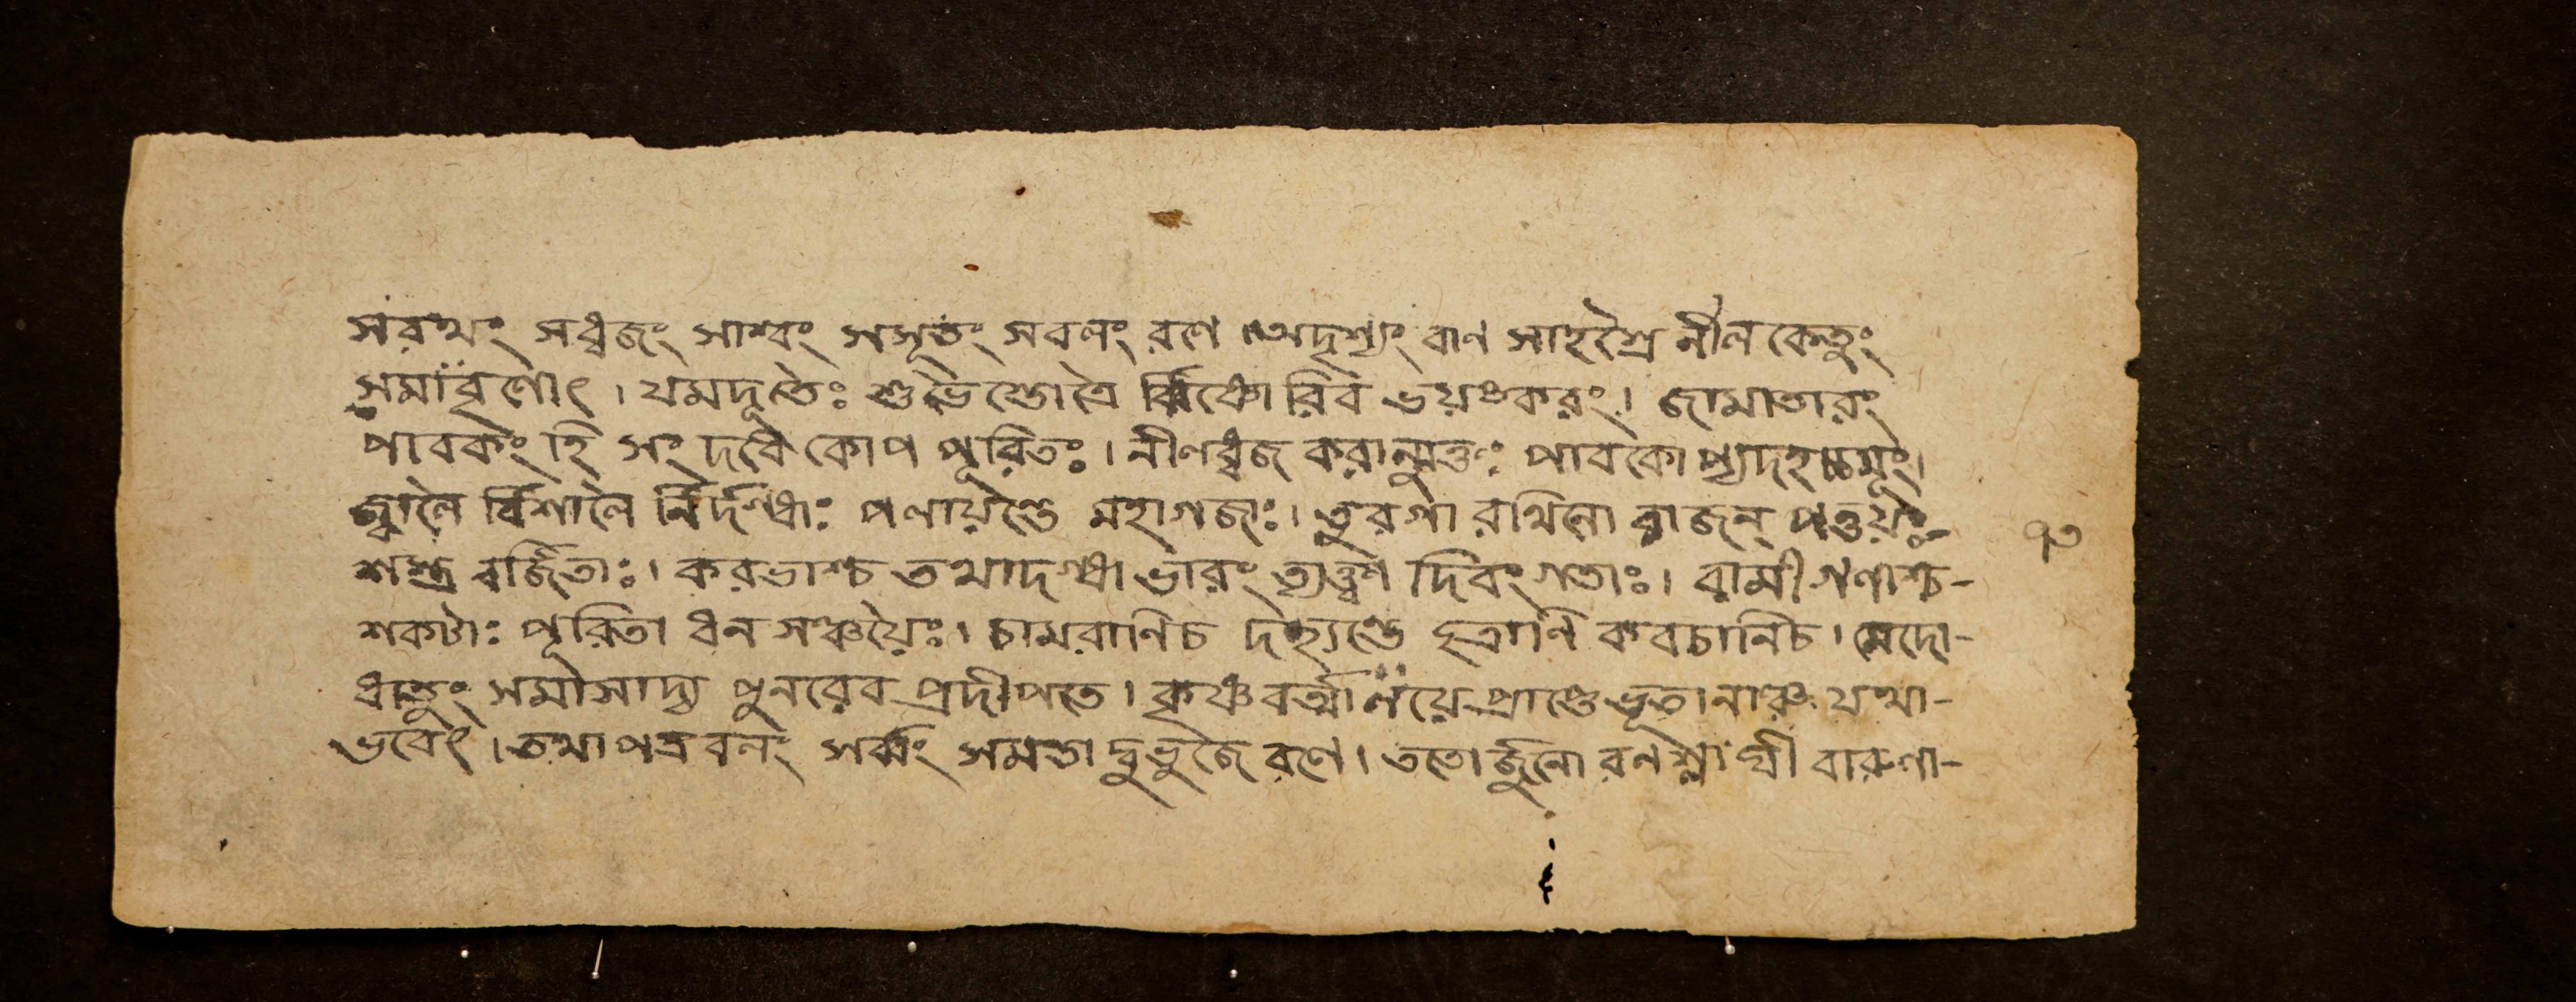 সরথং সধ্বজং সাশ্বং সসূতং সবলং রণে । অদৃশ্যং বাণ সাহস্রৈ র্নীল কেতুং
সমাবৃণোৎ । যমদূতৈঃ শুভৈস্তোত্রৈ র্বিষ্ণো রিব ভয়ঙ্করং । জামাতারং
পাবকং হি সং দধে কোপ পূরিতঃ । নীলধ্বজ করান্মুক্তঃ পাবকো প্যদহচ্চমূং ।
জ্বালৈ র্বিশালৈ র্নির্দগ্ধাঃ পলায়ন্তে মহাগজাঃ । তুরগা রথিনো রাজন্ পত্তয়ঃ
শস্ত্র বর্জিতাঃ । করভাশ্চ তথাদগ্ধা ভারং ত্যক্ত্বা দিবং গতাঃ । বামী গণাশ্চ-
শকটাঃ পূরিতা ধন সঞ্চয়ৈঃ । চামরানিচ দহ্যন্তে ছত্রাণি কবচানিচ । মেদো-
ধাতুং সমাসাদ্য পুনরেব প্রদীপ্যতে । কৃষ্ণবর্ত্মা লয়ে প্রাপ্তে ভূতানাঞ্চ যথা-
ভবেৎ । তথা পত্রবনং সর্ব্বং সমন্তা দ্বুভুজে রণে । ততোর্জুনো রণশ্লাঘী বারুণা-
৭৩